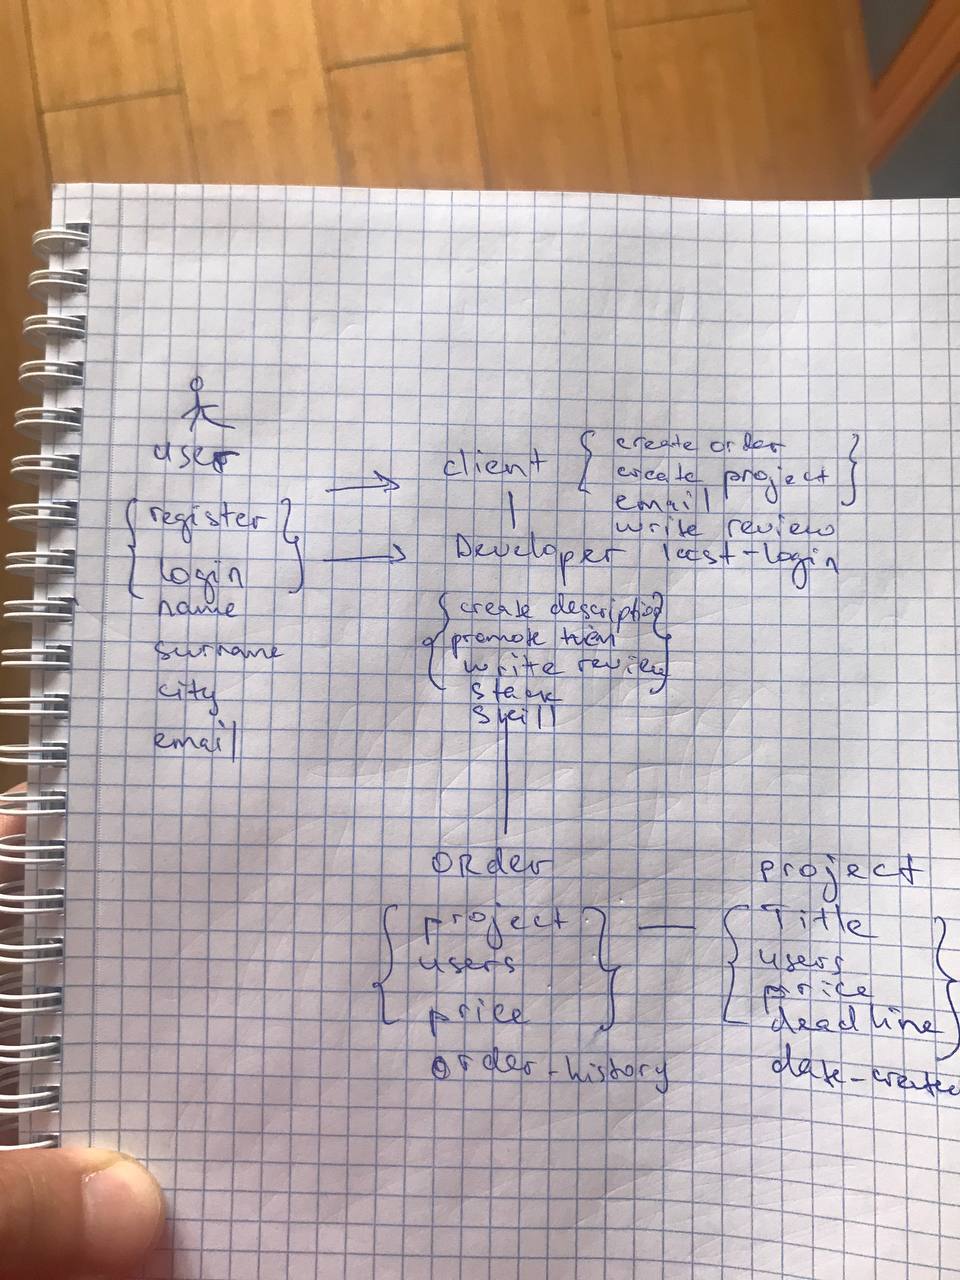 user
{ register }
login
name
surname
city
email
client
{ create order }
create project
email
write review
last-login
Developer
{ create description }
promote
write review
skill
ORder
{ project }
users
price
order-history
project
{ Title }
users
price
deadline